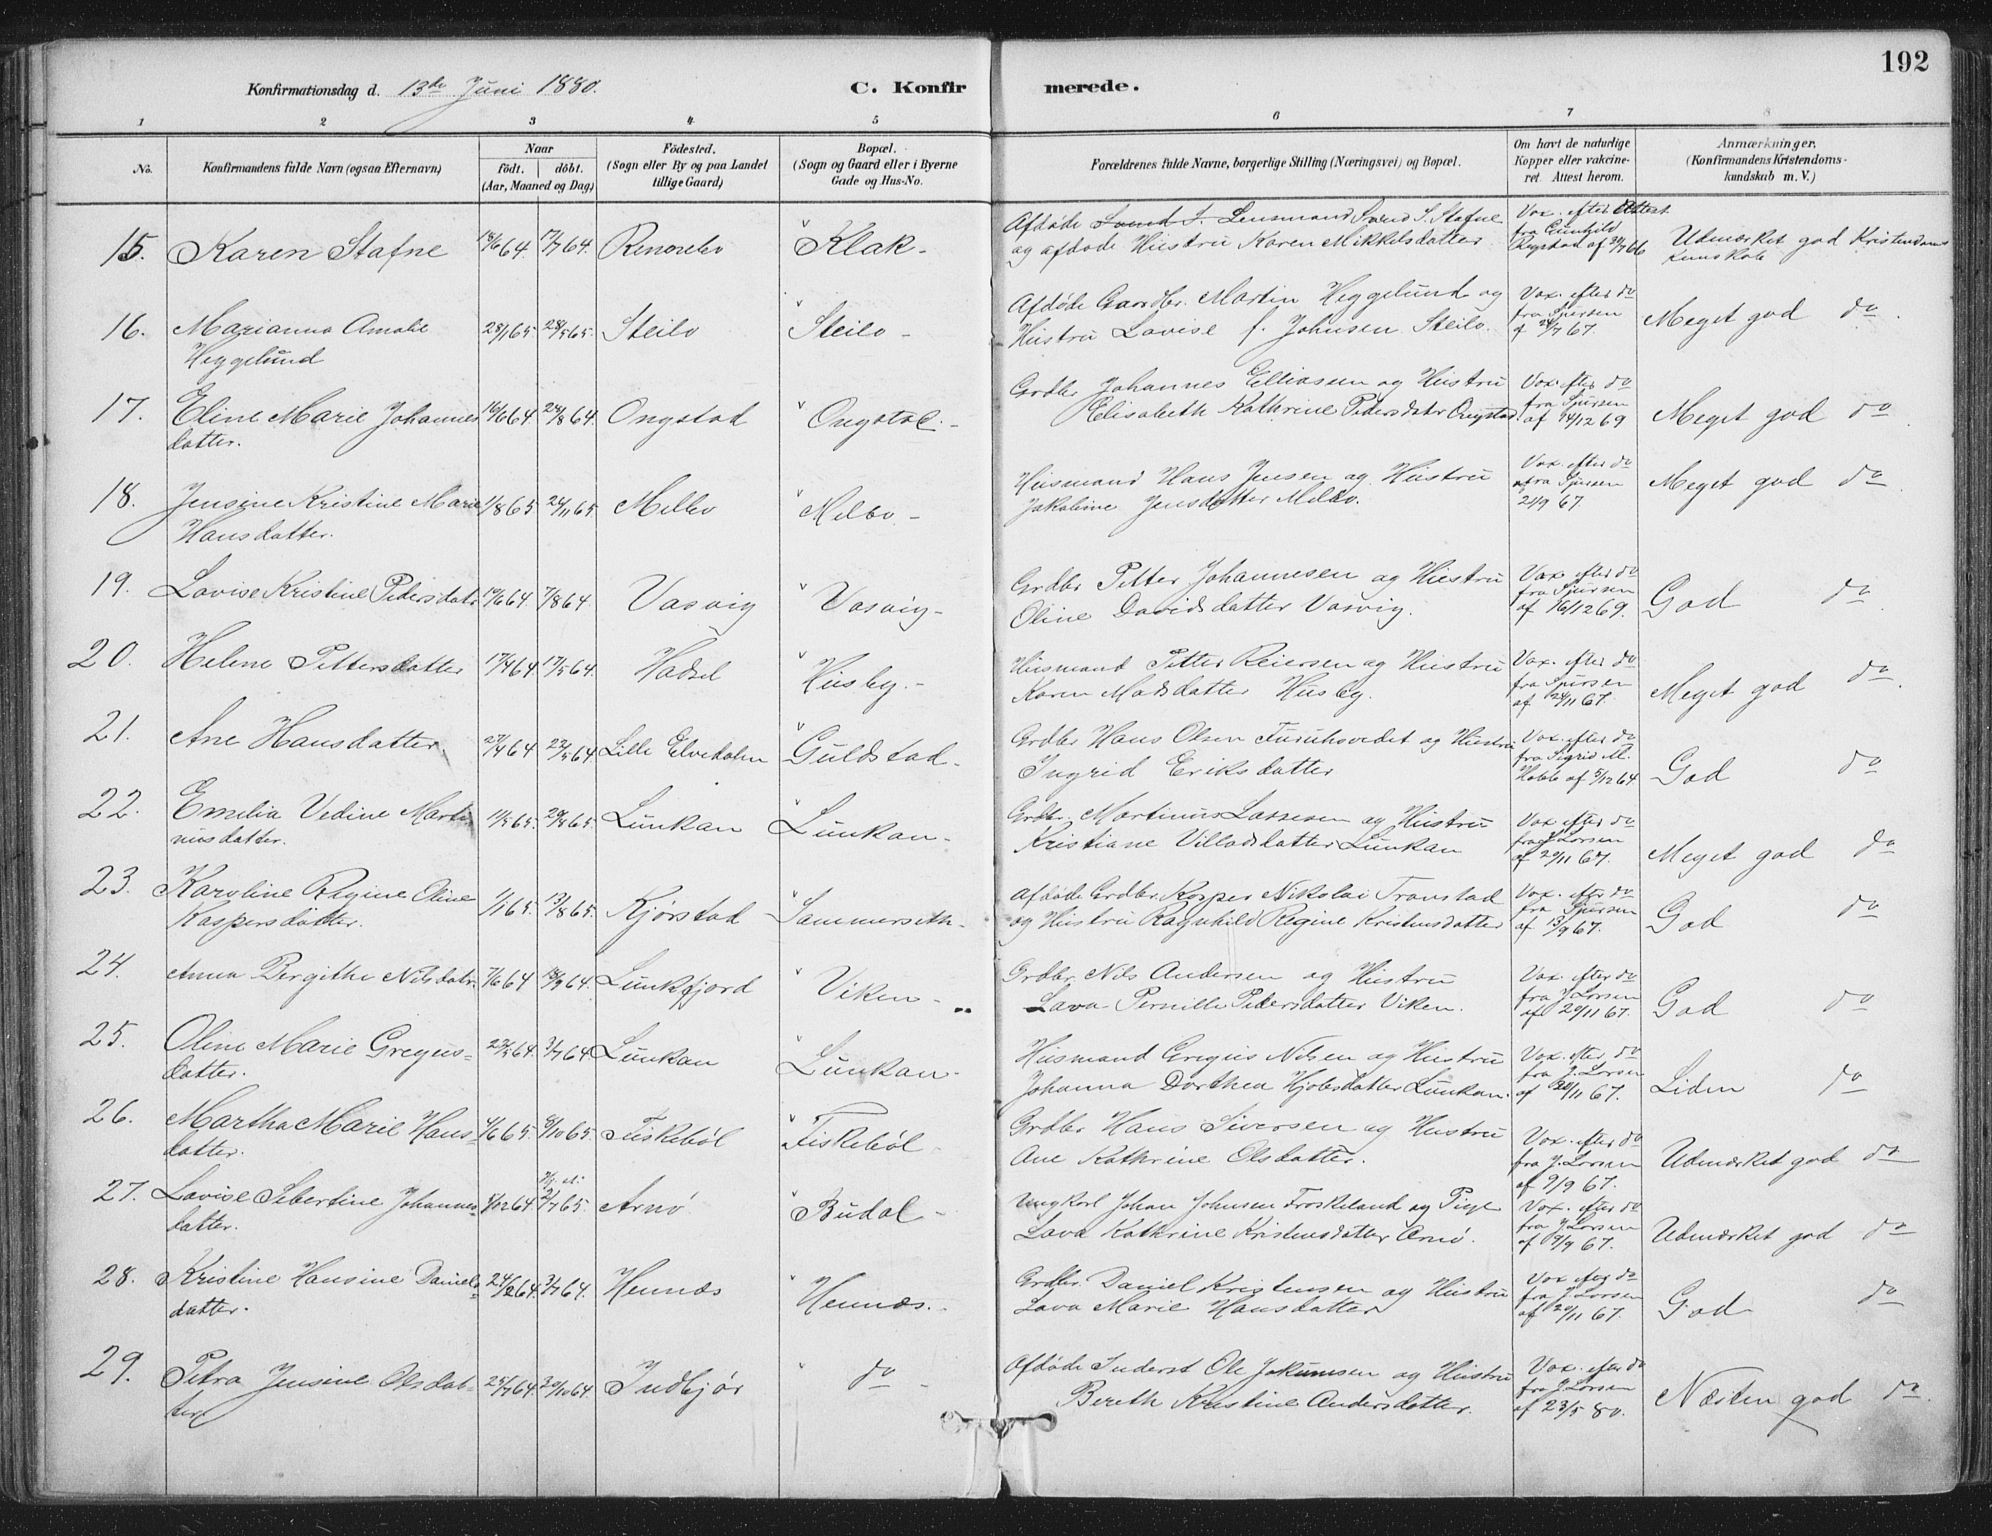 192
Konfirmationsdag d. 13de Juni 1880.
C. Konfirmerede.
1 2 3 4 5 6 7 8
No.
Konfirmandens fulde Navn (ogsaa Efternavn)
Naar
födt. döbt.
(Aar, Maaned og Dag)
Födested.
(Sogn eller By og paa Landet
tillige Gaard)
Bopæl.
(Sogn og Gaard eller i Byerne
Gade og Hus-No.
Forældrenes fulde Navne, borgerlige Stilling (Næringsvei) og Bopæl.
Om havt de naturlige
Kopper eller vakcine-
ret. Attest herom.
Anmærkninger.
(Konfirmandens Kristendoms-
kundskab m. V.)
15. Karen Stafne 18/6 64 17/7 64. Klak-
Afdøde Lensmand Svend S. Stafne
og afdøde Hustru Karen Mikkelsdatter
Vax. efter Attest
fra Gunhild
Rygstad af
Udmærket god Kristendoms
kunskab
16. Marianna Amalie
Heggelund
28/1 65. 28/5 65. Steilo Steilo-
Afdøde Gaardbr. Martin Heggelund og
Hustru Lovise f. Johnsen Steilo.
Vax. efter do
fra Sjursen
af 24/7 67.
Meget god do.
17. Eline Marie Johannes
datter.
16/6 64 28/8 64. Ongstad Ongstad.-
Grdbr Johannes Eliassen og Hustru
Elisabeth Kathrine Pedersdatr Ongstad.
Vax. efter do
fra Sjursen
af 14/12 69
Meget god do
18. Jensine Kristine Marie
Hansdatter.
1/8 65 24/11 65. Melbo Melbo-
Husmand Hans Jensen og Hustru
Jakobine Jensdatter Melbo.
Vax. efter do
fra Sjursen
24/9 67.
Meget god do
19. Lovise Kristine Pedersdatr 17/6 64. 7/8 64. Vasvig Vasvig-
Grdbr Petter Johannesen og Hustru
Oline Davidsdatter Vasvig.
Vax efter do
fra Sjursen
af 16/12 69.
God do
20. Helene Pettersdatter 17/4 64. 17/5 64. Hadsel Husby.-
Husmand Petter Reiersen og Hustru
Karen Madsdatter Husby.
Vax. efter do
fra Sjursen
af 24/11 67.
Meget god do
21. Ane Hansdatter 27/4 64 22/5 64 Lille Elvedalen Guldstad-
Grdbr Hans Olsen Furuhovedet og Hustru
Ingrid Eriksdatter
Vax. efter do
fra Sigrid M.
af 5/12 64
God do
22. Emelia Vedine Marti-
nusdatter.
11/5 65. 20/8 65. Lunkan Lunkan-
Grdbr. Martinus Lassesen og Hustru
Kristiane Villadsdatter Lunkan
Vax efter do
fra J Lorsen
af 20/11 67.
Meget god do
23. Karoline Regine Oline
Kaspersdatter.
1/1 65. 13/8 65. Kjørstad Sammerseth-
Afdøde Grdbr. Kasper Nikolai Transtad
og Hustru Ragnhild Regine Kristensdatter
Vax. efter do
fra Sjursen
af 13/9 67.
God do
24. Anna Bergithe Nilsdatr. 7/6 64 18/9 64. Lunkfjord Viken-
Grdbr. Nils Andersen og Hustru
Lava Pernille Pedersdatter Viken.
Vax. efter do
fra J Lorsen
af 20/11 67.
God do
25. Oline Marie Gregus-
datter.
22/5 64. 3/7 64 Lunkan Lunkan-
Husmand Gregus Nilsen og Hustru
Johanna Dorthea Hjobsdatter Lunkan.
Vax. efter do
fra J. Lorsen
af 20/11 67.
Liden do
26. Martha Marie Hans-
datter.
4/6 65. 8/10 65. Fiskebøl Fiskebøl-
Grdbr Hans Siversen og Hustru
Ane Kathrine Olsdatter.
Vax. efter do
fra J. Lorsen
af 9/9 67.
Udmærket god do
27. Lovise Sebertine Johannes-
datter.
2/7 65. Arnø Budal-
Ungkarl Johan Johnsen Froskeland og Pige
Lava Kathrine Kristensdatter Arnø.
Vax. efter do
fra J Lorsen
af 9/9 67.
Udmærket god do
28. Kristine Hansine Daniels-
datter.
24/2 64. 3/7 64. Hennæs Hennæs.-
Grdbr. Daniel Kristensen og Hustru
Lava Marie Hansdatter
Vax efter do
fra J. Lorsen
af 20/11 67.
God do
29. Petra Jensine Olsdat-
ter
25/7 64. 30/10 64. Indbjør do -
Afdøde Inderst Ole Jakumsen og Hustru
Bereth Kristine Andersdatter.
Vax. efter do
fra J Lorsen
af 23/5 80.
Næsten god do.